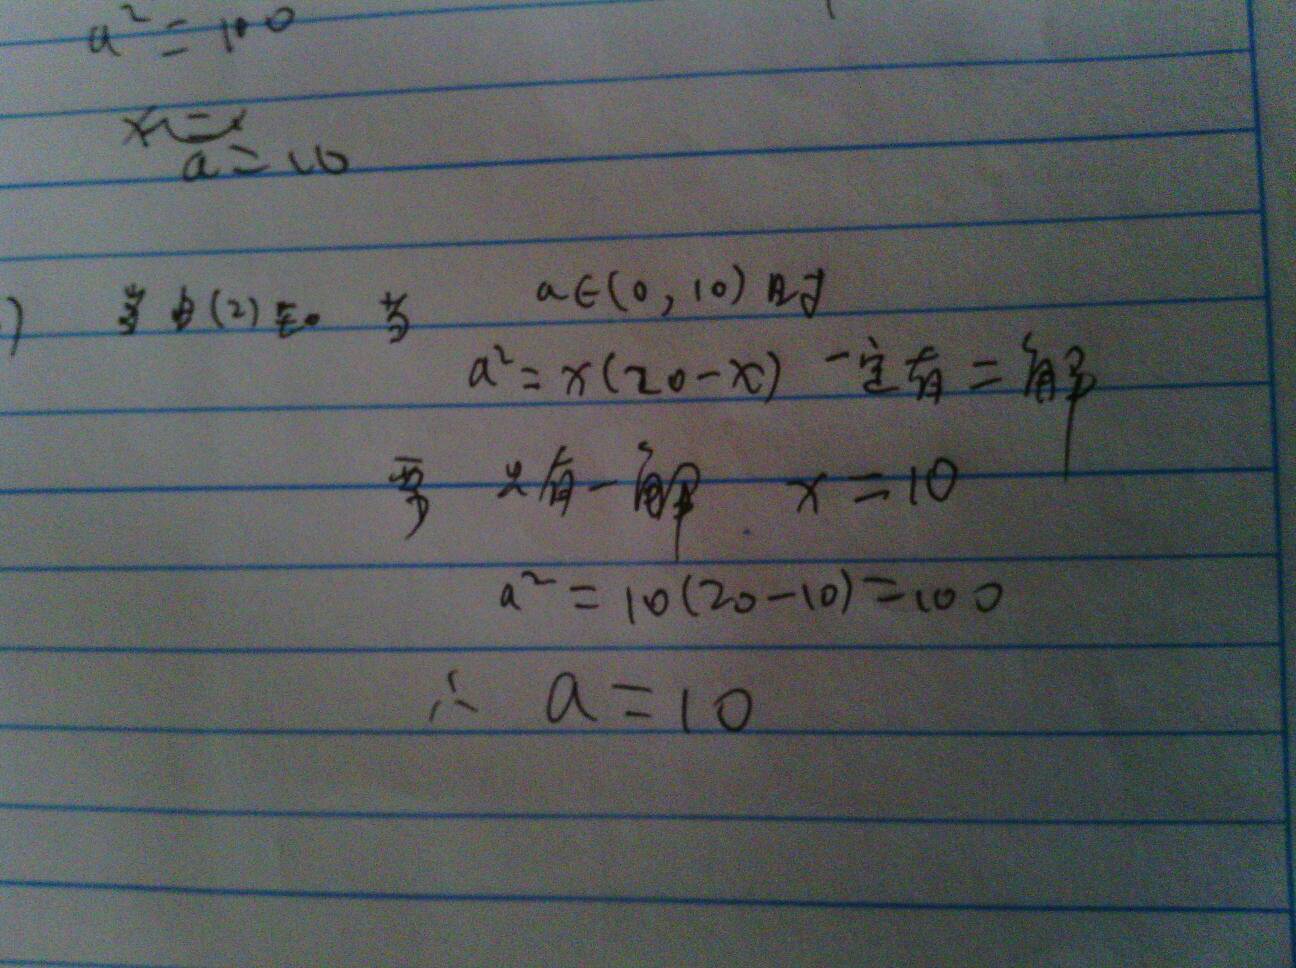 a² = 100
a = 10
) 由(2)知 当 a∈(0,10)时
a² = x(20-x) 一定有二解
要 只有一解 x = 10
a² = 10(20-10) = 100
∴ a = 10